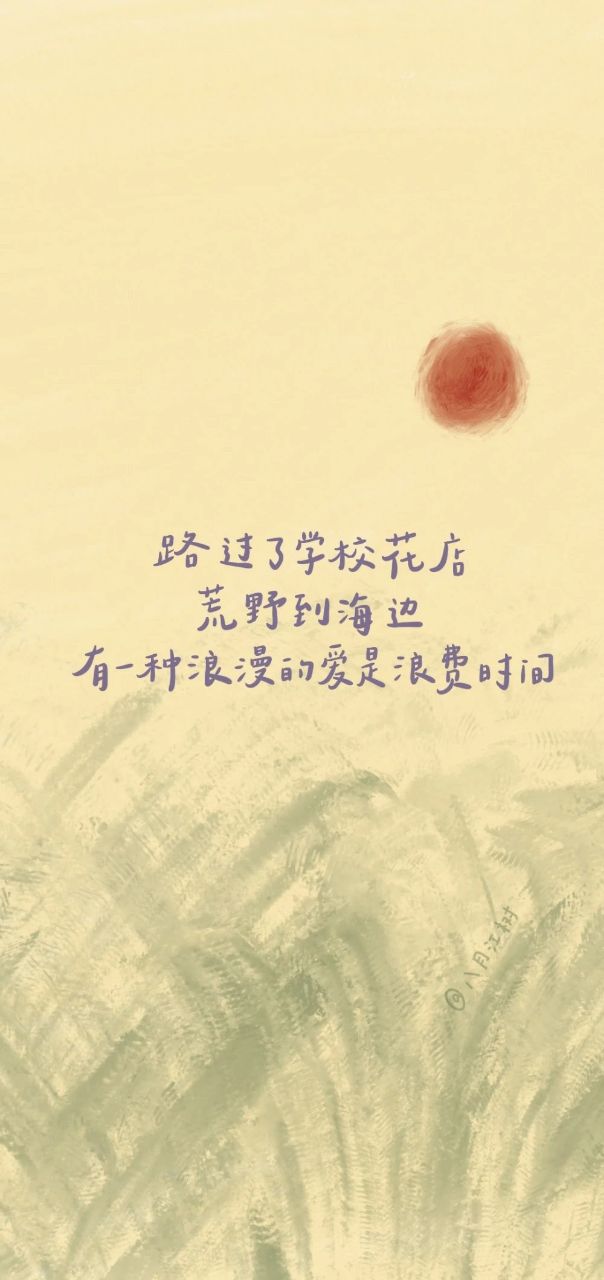 路过了学校花店
荒野到海边
有一种浪漫的爱是浪费时间
@八月江树